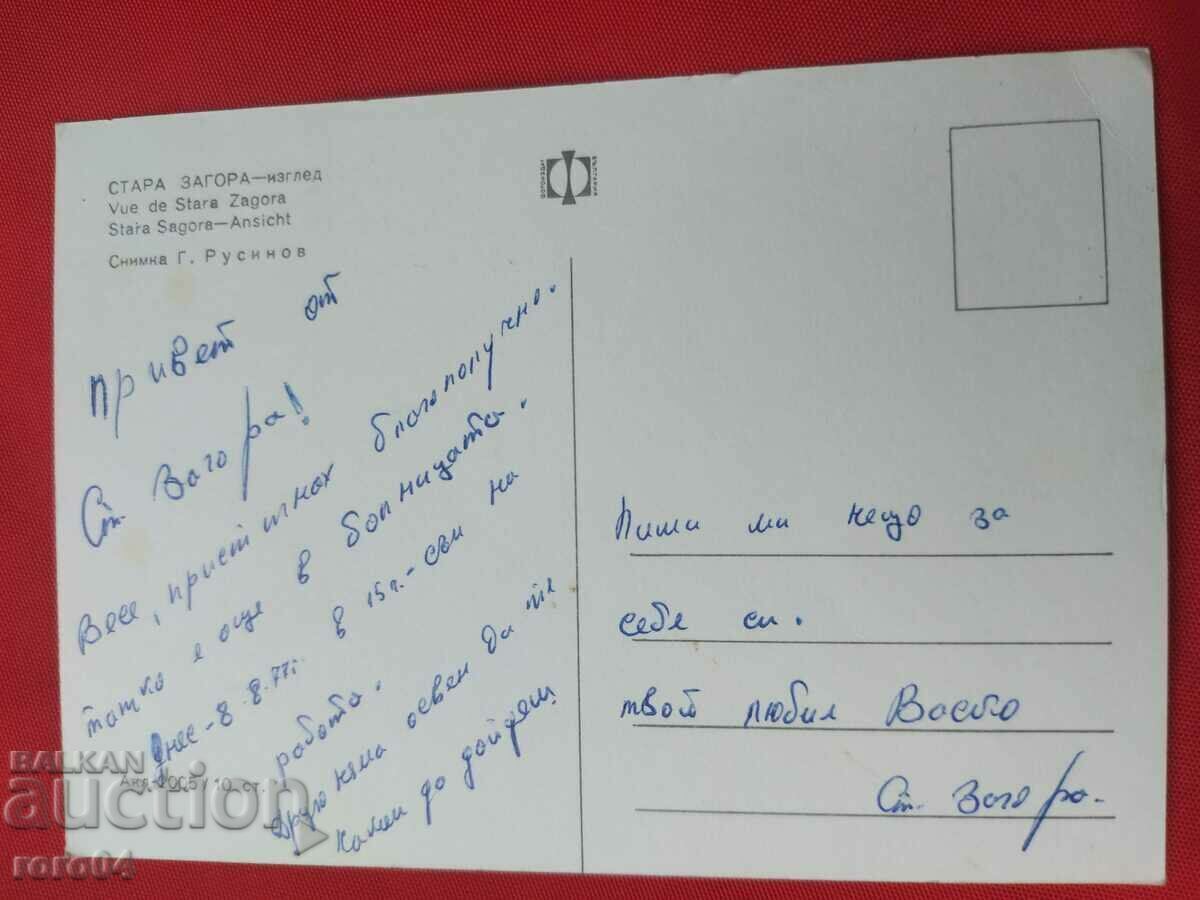 СТАРА ЗАГОРА—изглед
Vue de Stara Zagora
Stara Sagora—Ansicht
Снимка Г. Русинов
ФОТОИЗДАТ
БЪЛГАРИЯ
Привет от
Ст. Загора!
Весе, пристигнах благополучно.
татко е още в болницата.
Днес - 8.8.77г. в 15 г. - съм на
работа.
друго няма освен да те
каня да дойдеш
Акл-2005/10 ст.
Пиши ми нещо за
себе си.
твой любил Васко
Ст. Загора.
BALKAN
auction
roro04